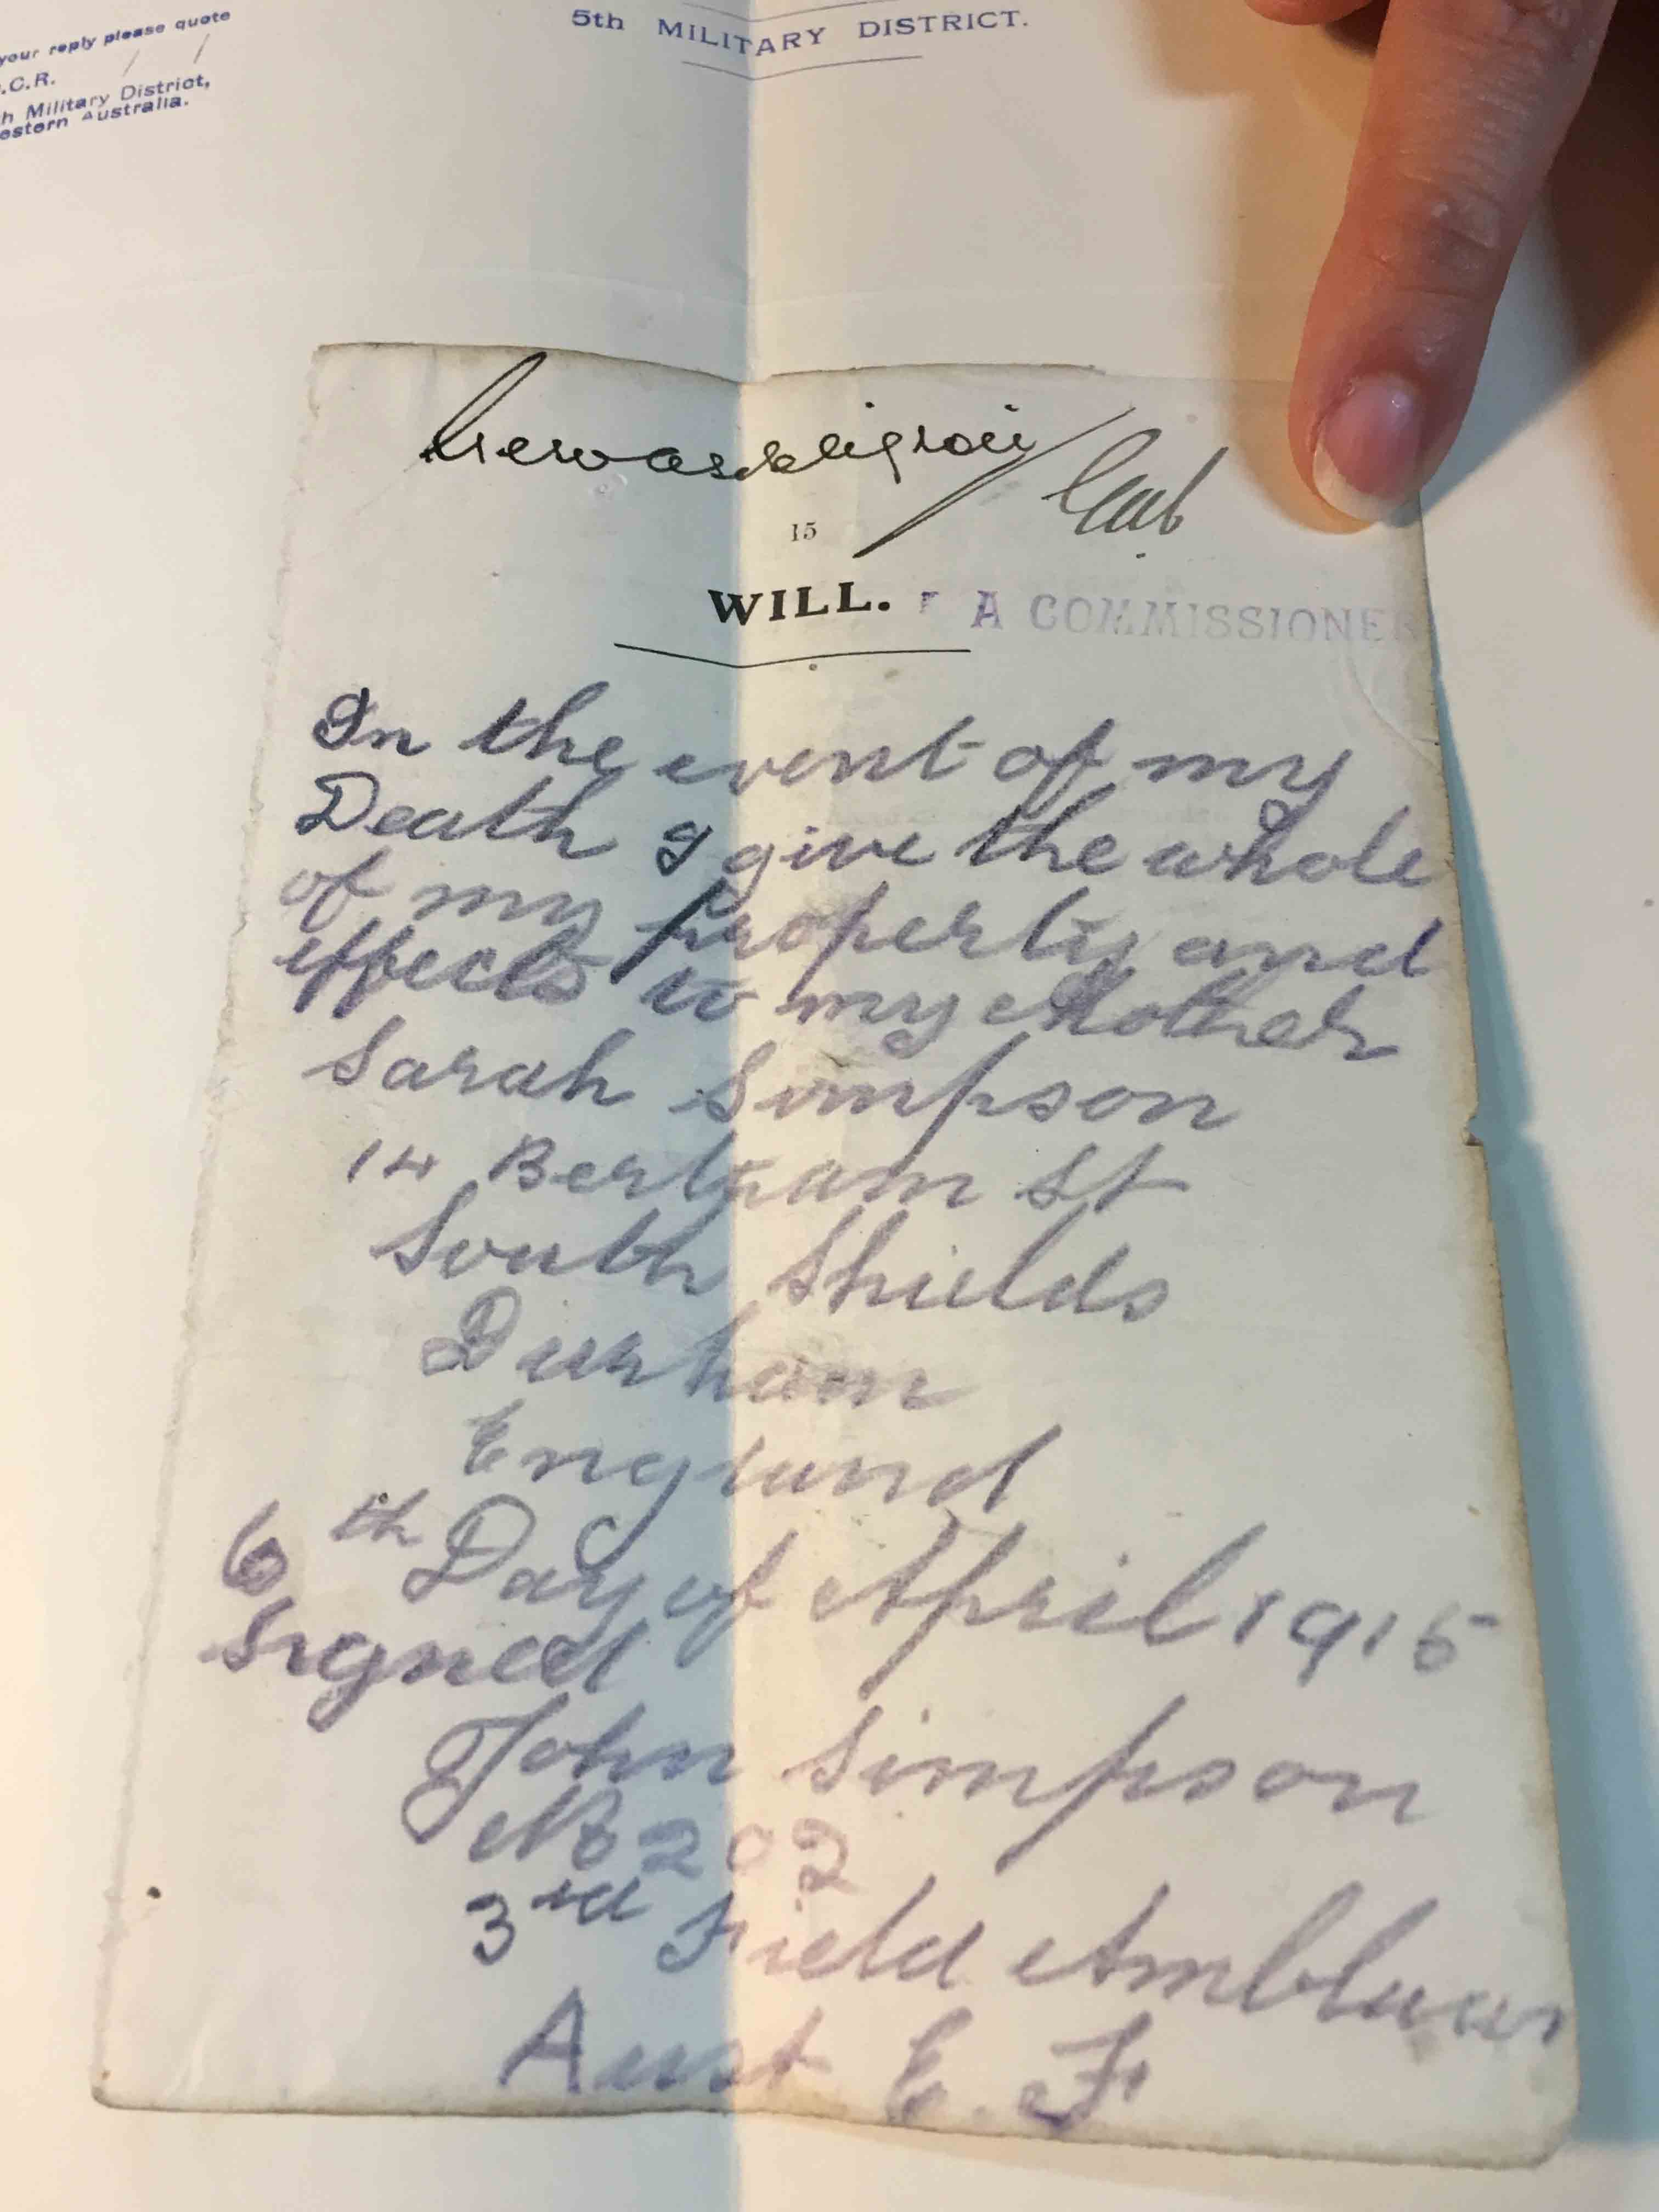 your reply please quote
.C.R.
h Military District,
estern Australia.
5th MILITARY DISTRICT.
15
WILL.
A COMMISSIONER
In the event of my
Death I give the whole
of my property and
effects to my Mother
Sarah Simpson
14 Bertram St
South Shields
Durham
England
6th Day of April 1915
Signed
John Simpson
No 202
3rd Field Ambluan
Aust E. F